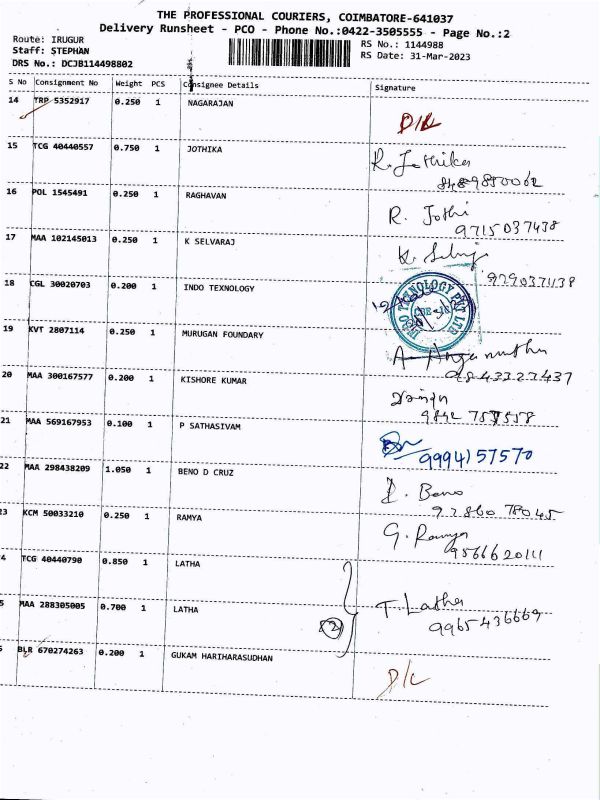 THE PROFESSIONAL COURIERS, COIMBATORE-641037
Delivery Runsheet - PCO - Phone No.:0422-3505555 - Page No.:2
Route: IRUGUR
Staff: STEPHAN
DRS No.: DCJB114498802
RS No.: 1144988
RS Date: 31-Mar-2023
S No Consignment No Weight PCS Consignee Details Signature
14 TRP 5352917 0.250 1 NAGARAJAN
15 TCG 40440557 0.750 1 JOTHIKA R. Jothika
8489850062
16 POL 1545491 0.250 1 RAGHAVAN R. Jothi
9715037438
17 MAA 102145013 0.250 1 K SELVARAJ
18 CGL 30020703 0.200 1 INDO TEXNOLOGY
INDO TEXNOLOGY PVT LTD
19 KVT 2807114 0.250 1 MURUGAN FOUNDARY
9843323437
20 MAA 300167577 0.200 1 KISHORE KUMAR
21 MAA 569167953 0.100 1 P SATHASIVAM
9994157570
22 MAA 298438209 1.050 1 BENO D CRUZ Beno
92860 78045
23 KCM 50033210 0.250 1 RAMYA G. Ramya
9566620111
4 TCG 40440790 0.850 1 LATHA
5 MAA 288305005 0.700 1 LATHA T. Latha
2
9965436669
6 BLR 670274263 0.200 1 GUKAM HARIHARASUDHAN
D/L